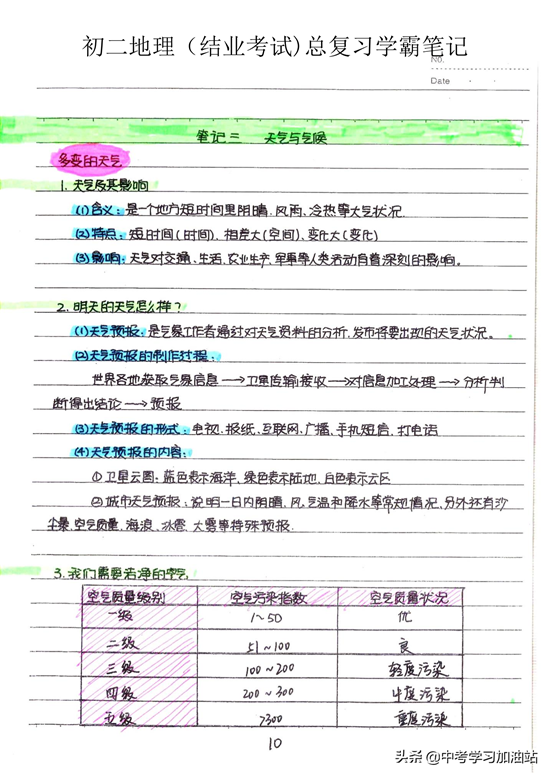 初二地理（结业考试)总复习学霸笔记
No.
Date
笔记三 天气与气候
多变的天气
1. 天气及其影响
(1) 含义：是一个地方短时间里阴晴、风雨、冷热等大气状况.
(2) 特点：短时间(时间)、相差大(空间)、变化大(变化)
(3) 影响：天气对交通、生活、农业生产、军事等人类活动有着深刻的影响。
2. 明天的天气怎么样？
(1) 天气预报：是气象工作者通过对天气资料的分析,发布将要出现的天气状况。
(2) 天气预报的制作过程：
世界各地获取气象信息→卫星传输接收→对信息加工处理→分析判
断得出结论→预报
(3) 天气预报的形式：电视、报纸、互联网、广播、手机短信、打电话
(4) 天气预报的内容：
①卫星云图：蓝色表示海洋、绿色表示陆地、白色表示云区
②城市天气预报：说明一日内阴晴、风、气温和降水等常规情况,另外还有沙
尘暴、空气质量、海浪、冰雹、大雾等特殊预报.
3. 我们需要洁净的空气
空气质量级别 空气污染指数 空气质量状况
一级 1～50 优
二级 51～100 良
三级 100～200 轻度污染
四级 200～300 中度污染
五级 >300 重度污染
10
头条@中考学习加油站